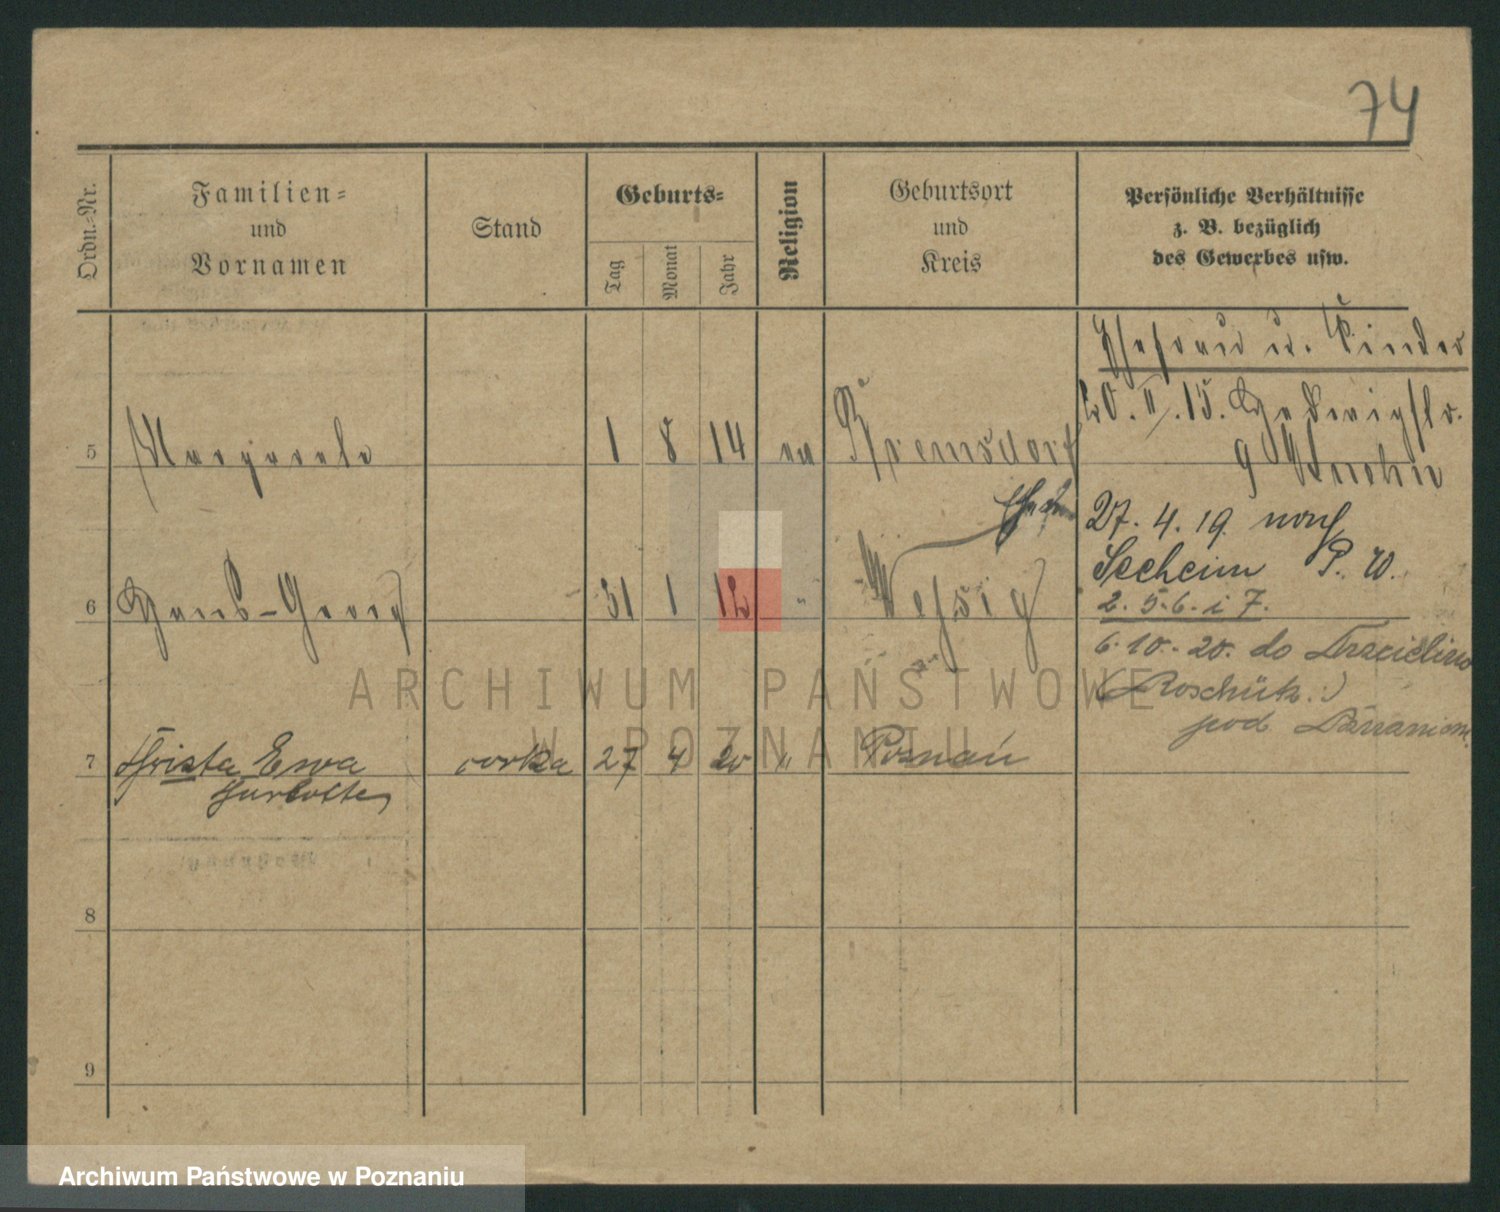 74
Ordn.-Nr.
Familien-
und
Vornamen
Stand
Geburts-
Tag
Monat
Jahr
Religion
Geburtsort
und
Kreis
Persönliche Verhältnisse
z. B. bezüglich
des Gewerbes usw.
Ehefrau u. Kinder
20. II. 15. Hedwigstr.
9
5 Margarete 1 8 14 ev
27. 4. 19 nach
Seeheim P. W.
2. 5. 6. i 7.
6 Hans-Georg 31 1 12 "
6. 10. 20. do
pod
7 Christa Ewa córka 27 4 20 " Poznań
8
9
ARCHIWUM PAŃSTWOWE
W POZNANIU
Archiwum Państwowe w Poznaniu